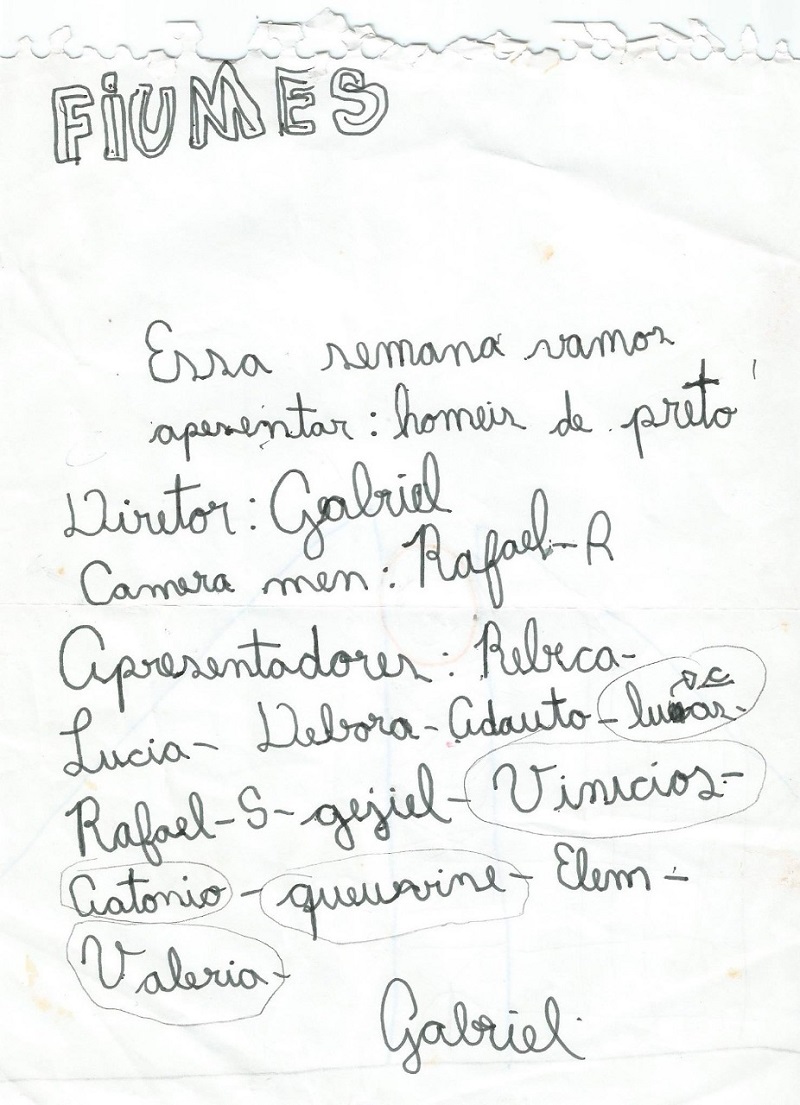 FIUMES
Essa semana vamos
apesentar: homeis de preto
Diretor: Gabriel
Camera men: Rafael-R
Apresentadores: Rebeca-
Lucia- Debora- Adauto-
Rafael-S- geziel- Vinicios-
Aatonio- queuvine- Elem-
Valeria-
Gabriel